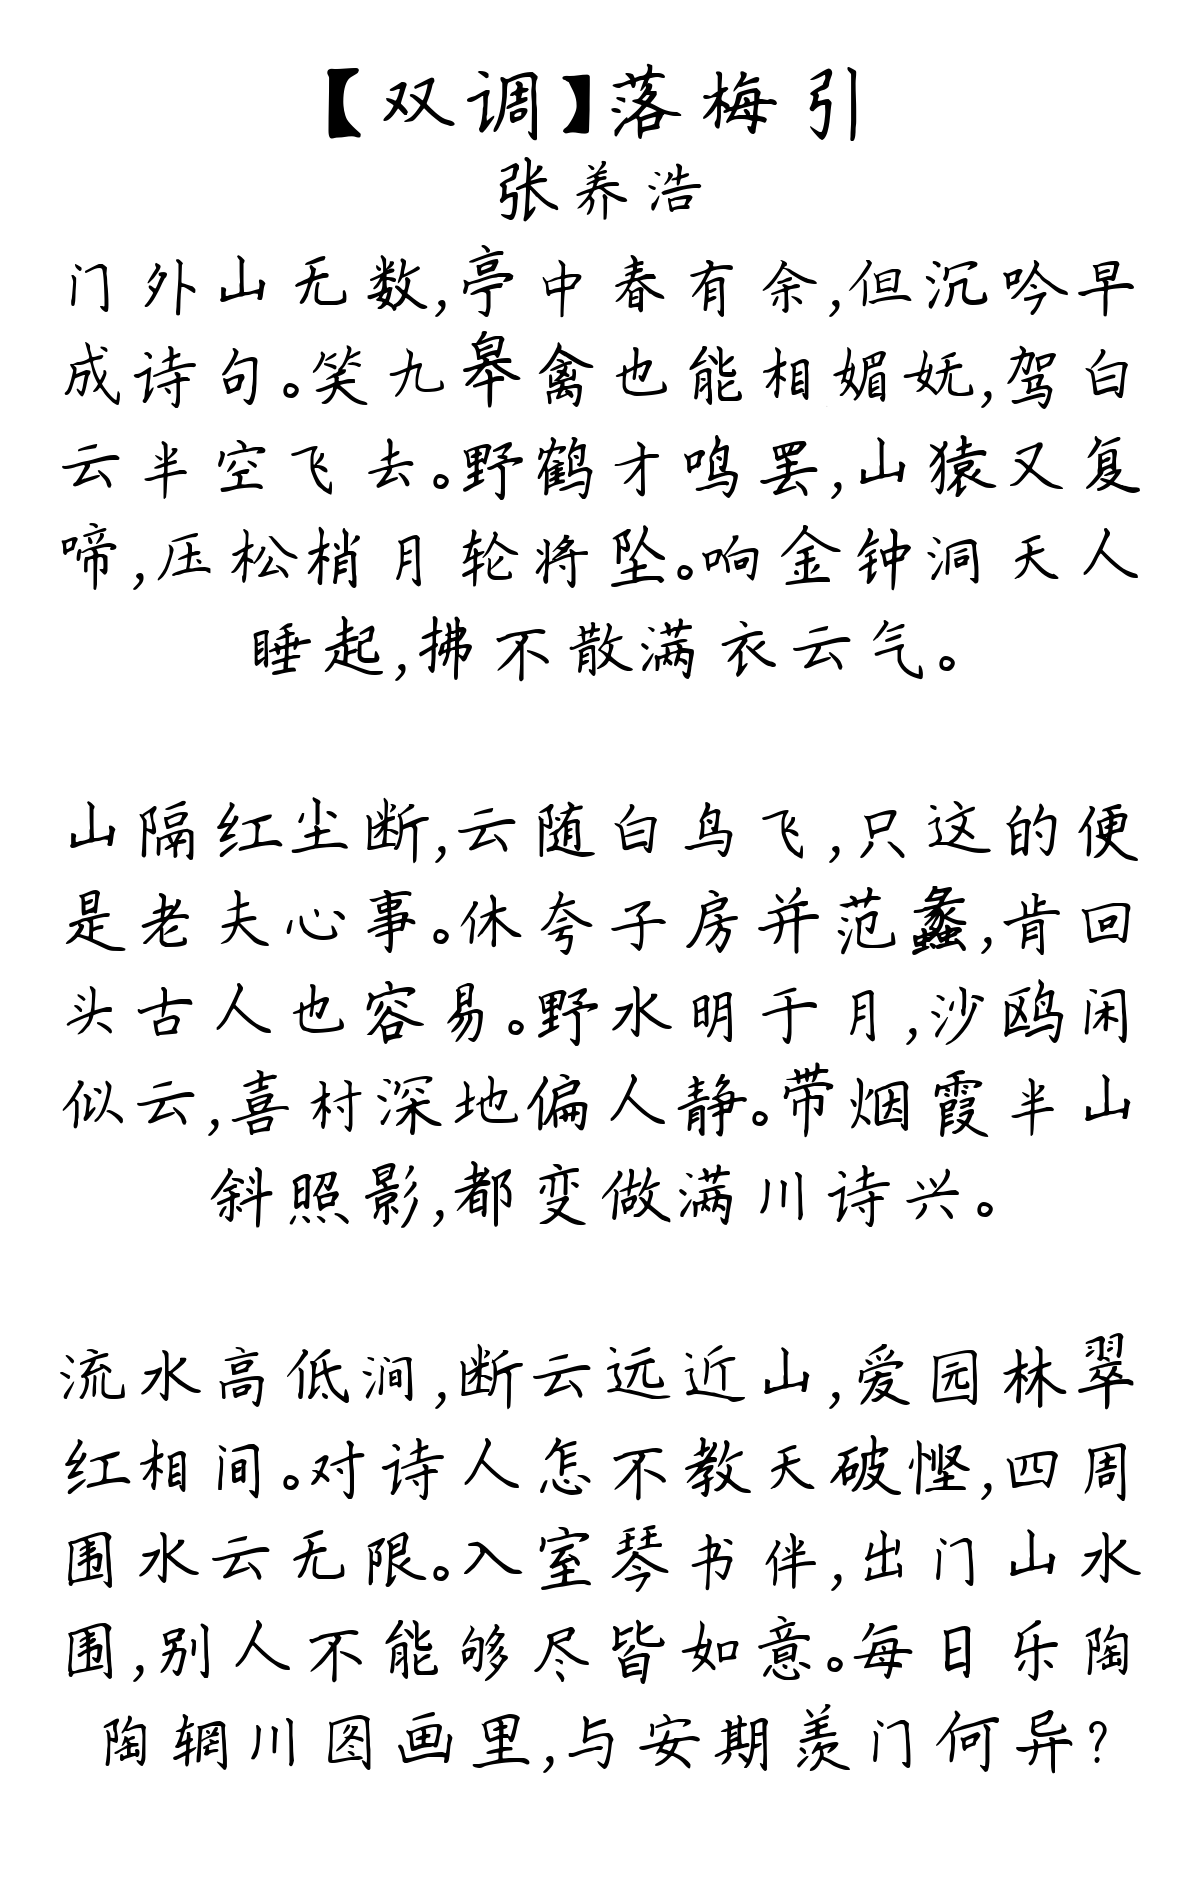 【双调】落梅引
张养浩
门外山无数,亭中春有余,但沉吟早
成诗句。笑九皋禽也能相媚妩,驾白
云半空飞去。野鹤才鸣罢,山猿又复
啼,压松梢月轮将坠。响金钟洞天人
睡起,拂不散满衣云气。
山隔红尘断,云随白鸟飞,只这的便
是老夫心事。休夸子房并范蠡,肯回
头古人也容易。野水明于月,沙鸥闲
似云,喜村深地偏人静。带烟霞半山
斜照影,都变做满川诗兴。
流水高低涧,断云远近山,爱园林翠
红相间。对诗人怎不教天破悭,四周
围水云无限。入室琴书伴,出门山水
围,别人不能够尽皆如意。每日乐陶
陶辋川图画里,与安期羡门何异?